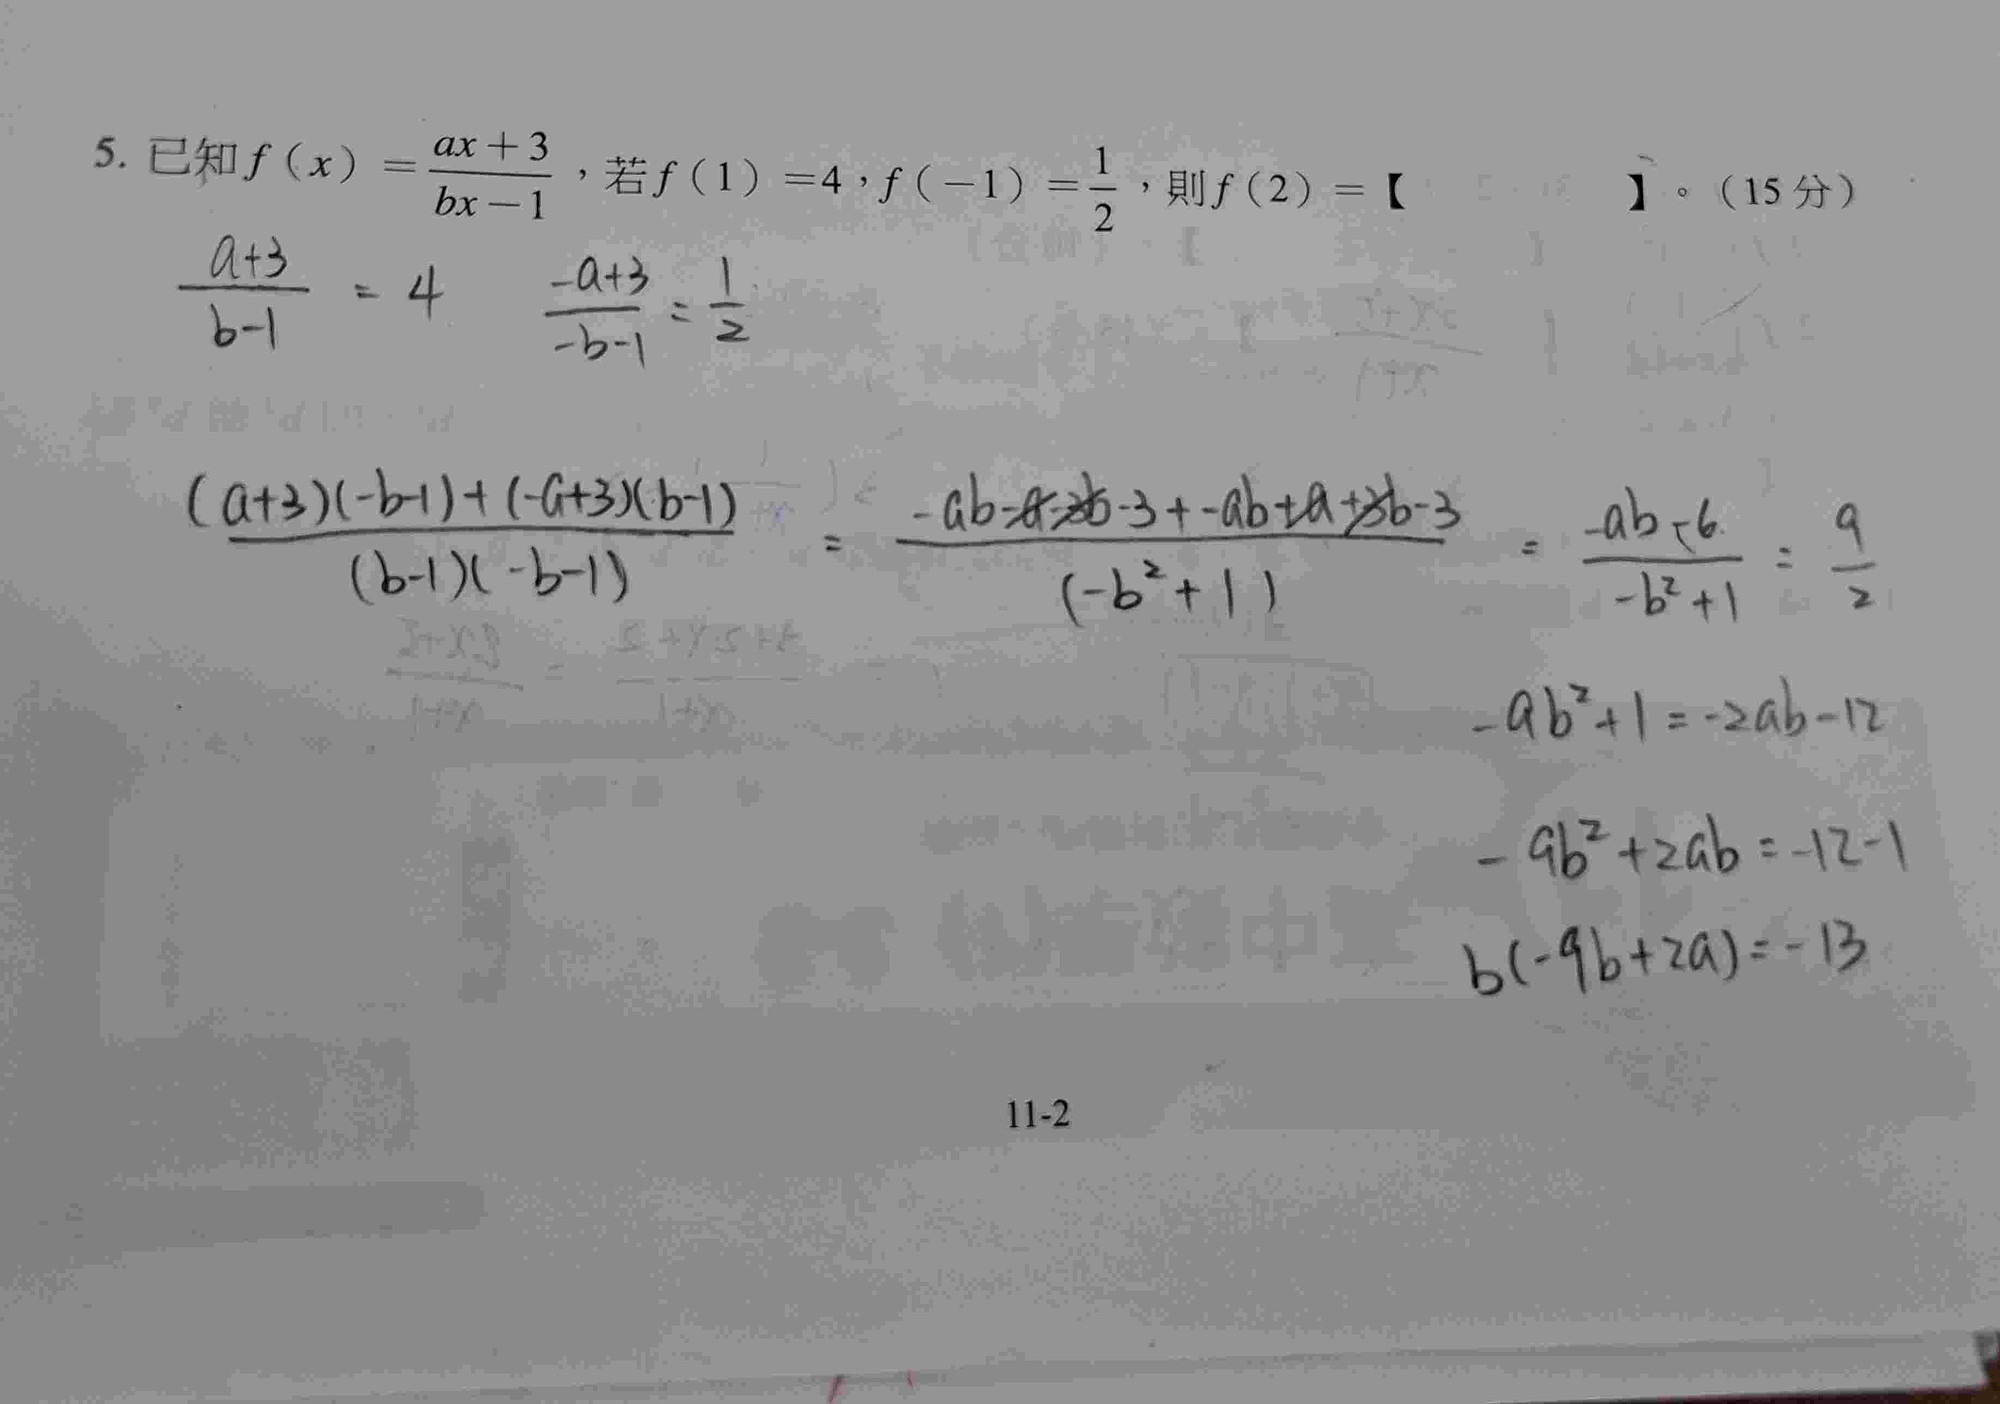 5. 已知 f（x）= \frac{ax+3}{bx-1}，若 f（1）=4，f（-1）= \frac{1}{2}，則 f（2）=【　　】。（15 分）
\frac{a+3}{b-1} = 4　\frac{-a+3}{-b-1} = \frac{1}{2}
\frac{(a+3)(-b-1)+(-a+3)(b-1)}{(b-1)(-b-1)} = \frac{-ab-a-3b-3+-ab+a+3b-3}{(-b^2+1)} = \frac{-ab-6}{-b^2+1} = \frac{9}{2}
-9b^2+1=-2ab-12
-9b^2+2ab=-12-1
b(-9b+2a)=-13
11-2